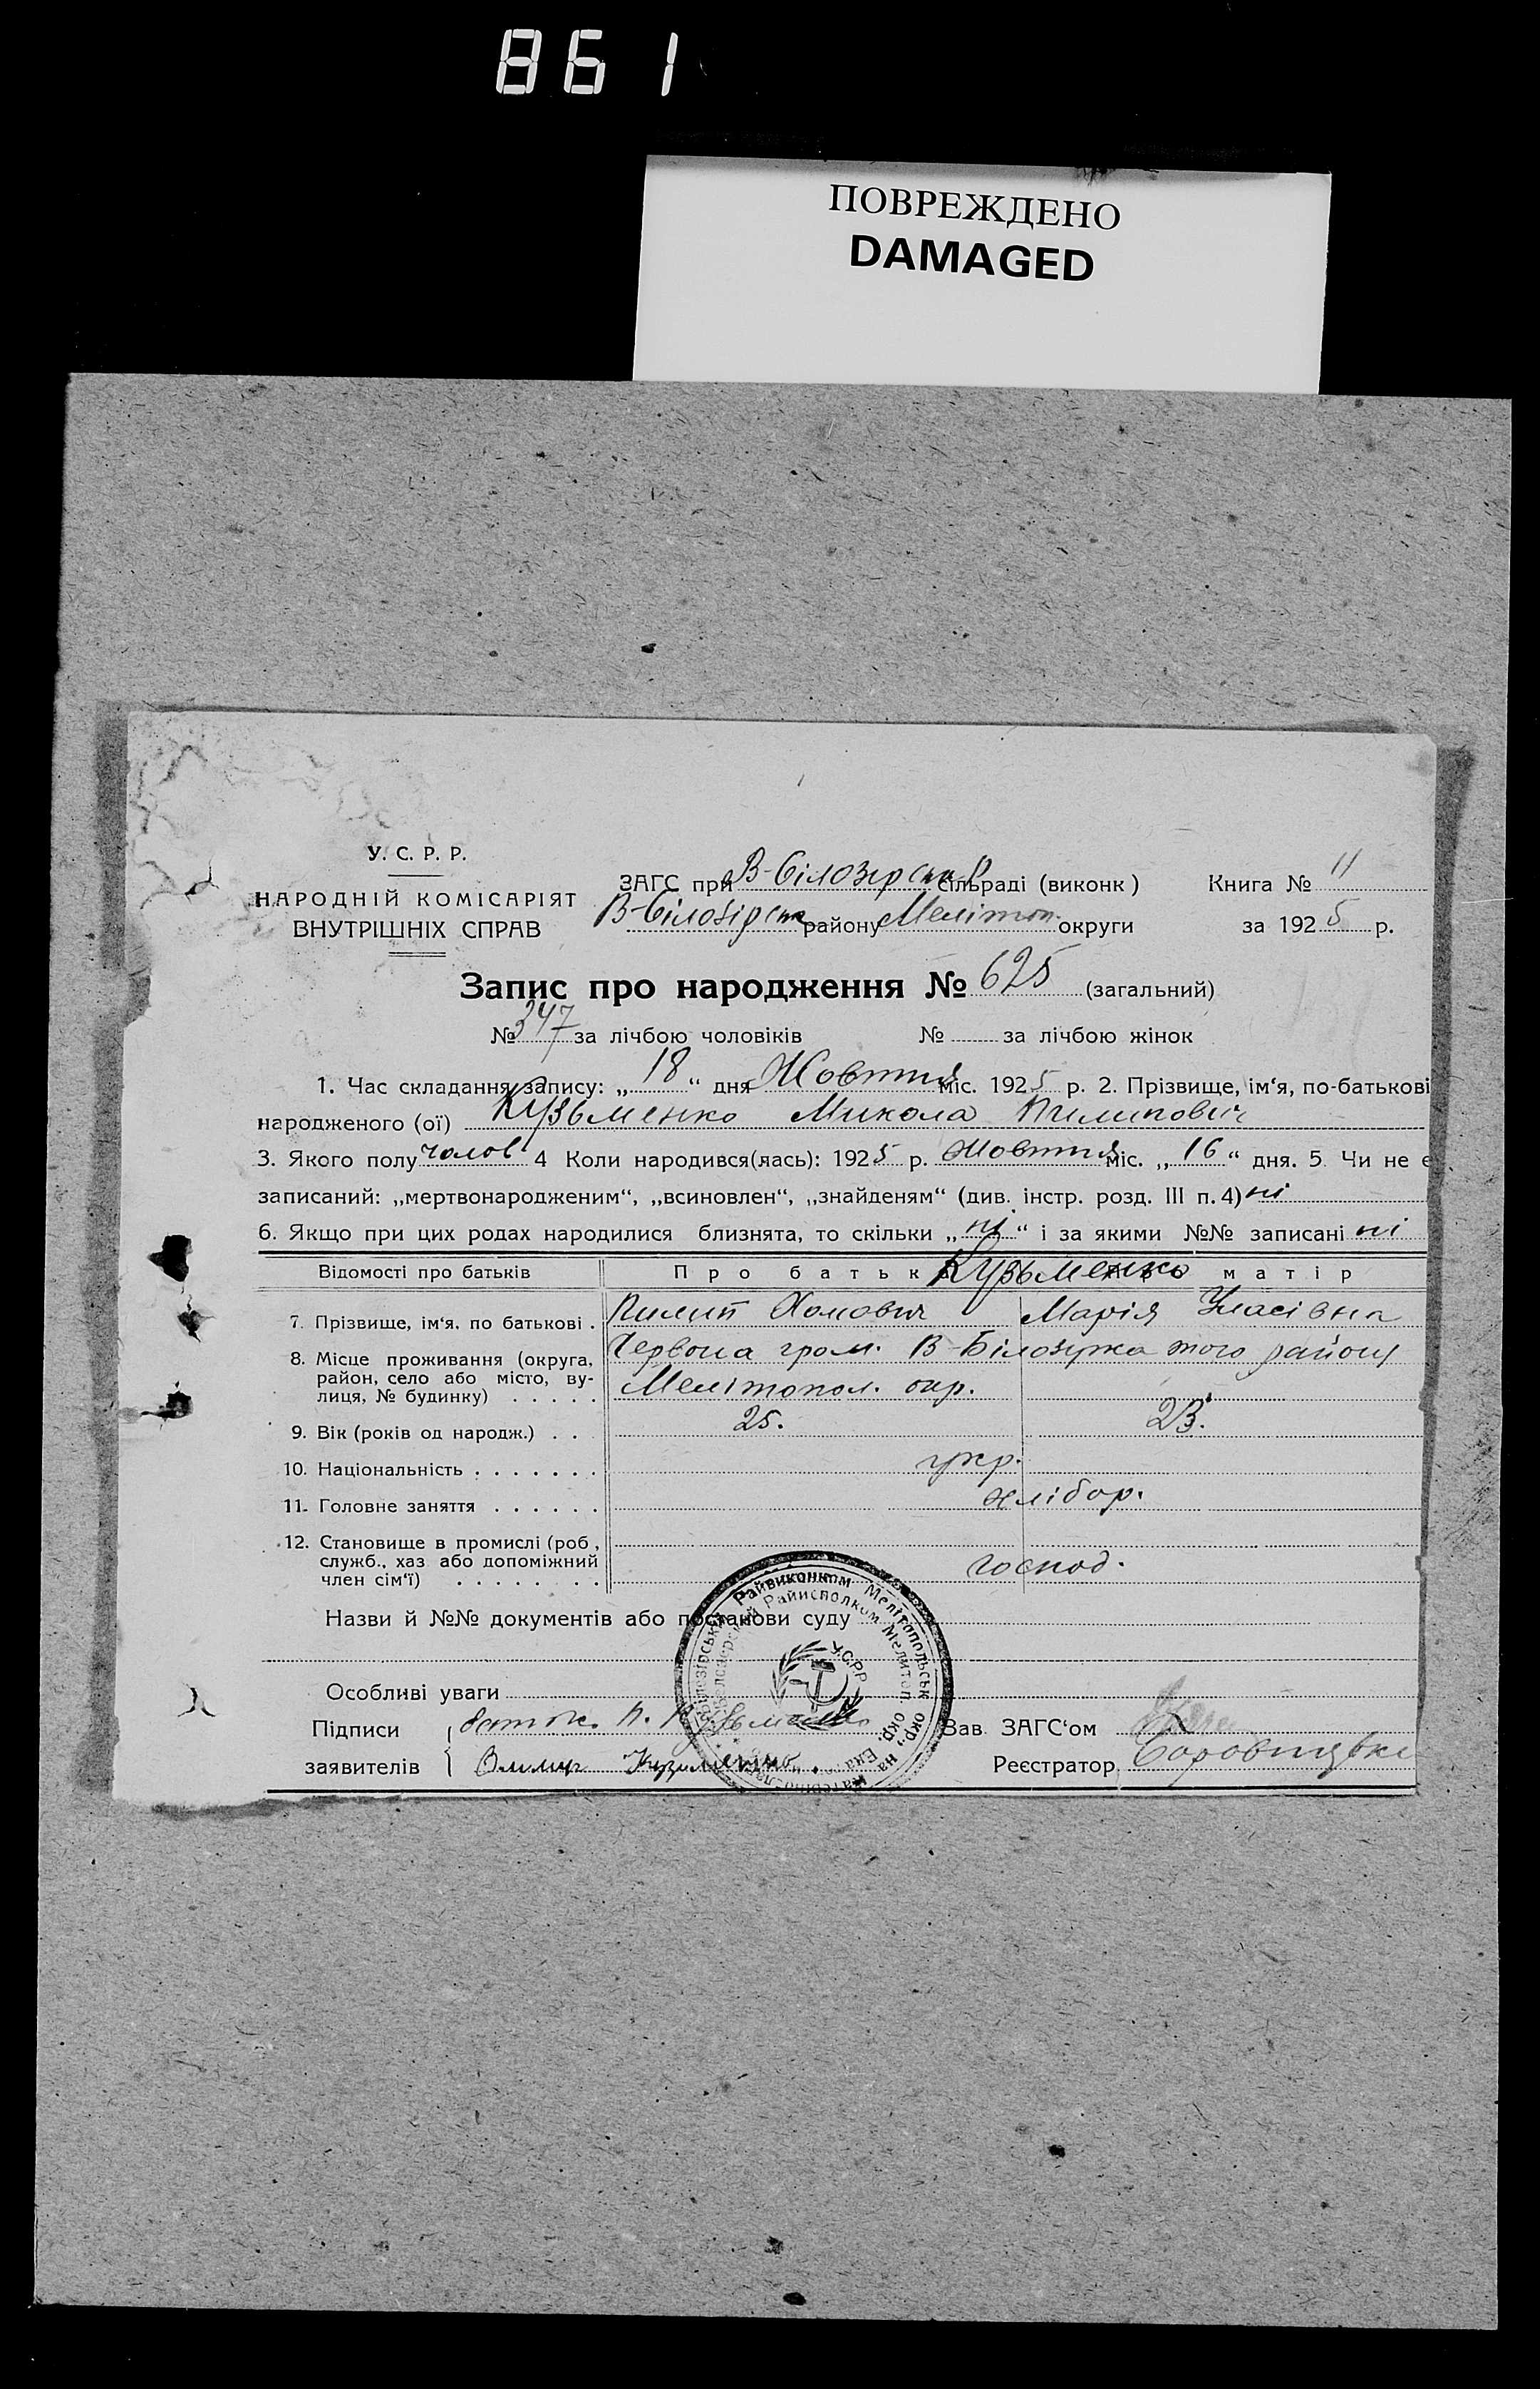 861
ПОВРЕЖДЕНО
DAMAGED
У. С. Р. Р.
НАРОДНІЙ КОМІСАРІЯТ
ВНУТРІШНІХ СПРАВ
ЗАГС при В-Білозірск сільраді (виконк) Книга № 11
В-Білозірск району Меліт. округи за 1925 р.
Запис про народження № 625 (загальний)
№ 347 за лічбою чоловіків № за лічбою жінок
1. Час складання запису: „ 18 “ дня Жовтня міс. 1925 р. 2. Прізвище, ім‘я, по-батькові
народженого (ої) Кузьменко Микола Пилипович
3. Якого полу чолов 4 Коли народився(лась): 1925 р. Жовтня міс. „ 16 “ дня. 5. Чи не є
записаний: „мертвонародженим“, „всиновлен“, „знайденям“ (див. інстр. розд. III п. 4) ні
6. Якщо при цих родах народилися близнята, то скільки „ ні “ і за якими №№ записані ні
Відомості про батьків Про батька матір
Кузьменко
7. Прізвище, ім‘я, по батькові . Пилип Хомович Марія Уласівна
8. Місце проживання (округа, район, село або місто, вулиця, № будинку) . . . . . Червона гром. В-Білозірка того району
Мелітопол. окр.
9. Вік (років од народж.) . . 25. 23.
10. Національність . . . . . . . укр.
11. Головне заняття . . . . . . хлібор.
12. Становище в промислі (роб,
служб., хаз або допоміжний
член сім‘ї) . . . . . . . . господ.
Назви й №№ документів або постанови суду
Райвиконком Мелітопольськ окр., на
Райисполком Мелитоп. окр. Ека
У.С.Р.Р
Особливі уваги
Підписи батько П. Кузьменко Зав ЗАГС‘ом
заявителів Кузьменко. Реєстратор